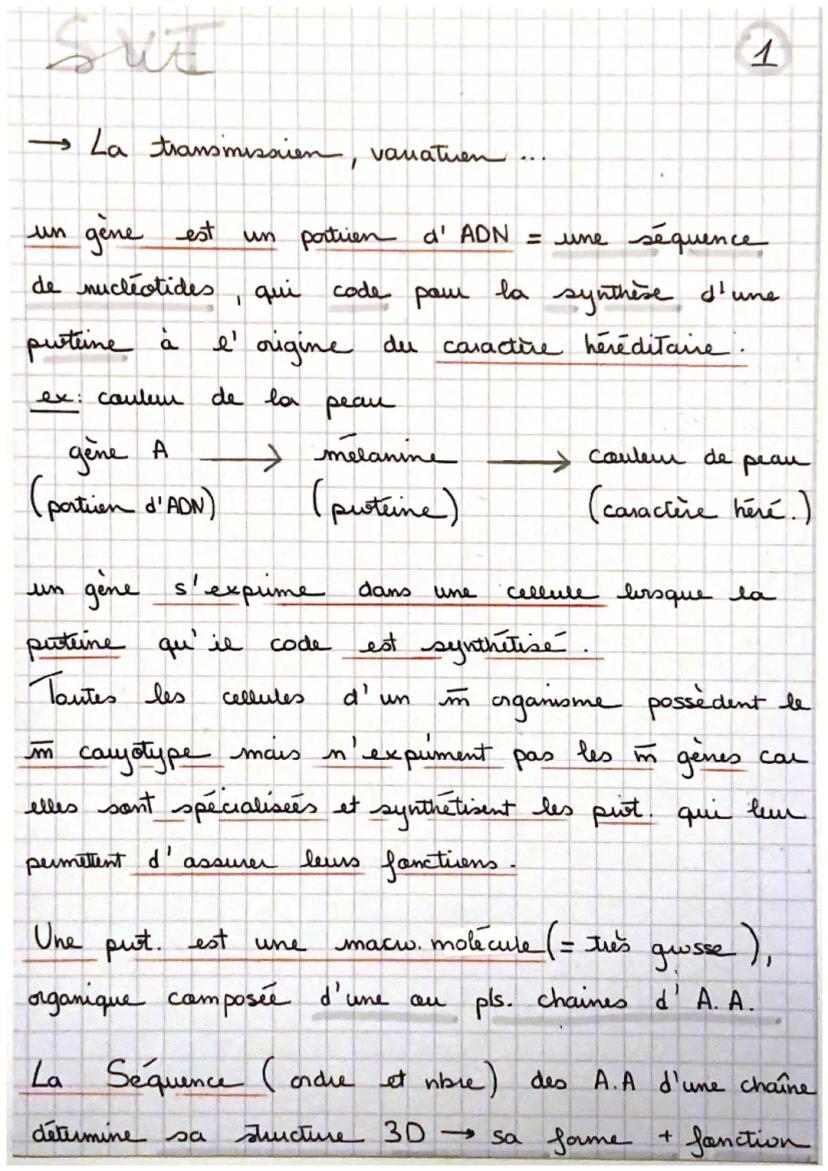 SVT
1
→ La transmission, variation ...
un gène est un portion d'ADN = une séquence
de nucléotides, qui code pour la synthèse d'une
protéine à l'origine du caractère héréditaire.
ex: couleur de la peau
gène A → mélanine → couleur de peau
(portion d'ADN) (protéine) (caractère héré.)
un gène s'exprime dans une cellule lorsque la
protéine qu'il code est synthétisé.
Toutes les cellules d'un m̄ organisme possèdent le
m̄ caryotype mais n'expriment pas les m̄ gènes car
elles sont spécialisées et synthétisent les prot. qui leur
permettent d'assurer leurs fonctions.
Une prot. est une macro. molécule (= très grosse),
organique composée d'une ou pls. chaines d'A.A.
La Séquence (ordre et nbre) des A.A d'une chaîne
détermine sa structure 3D → sa forme + fonction